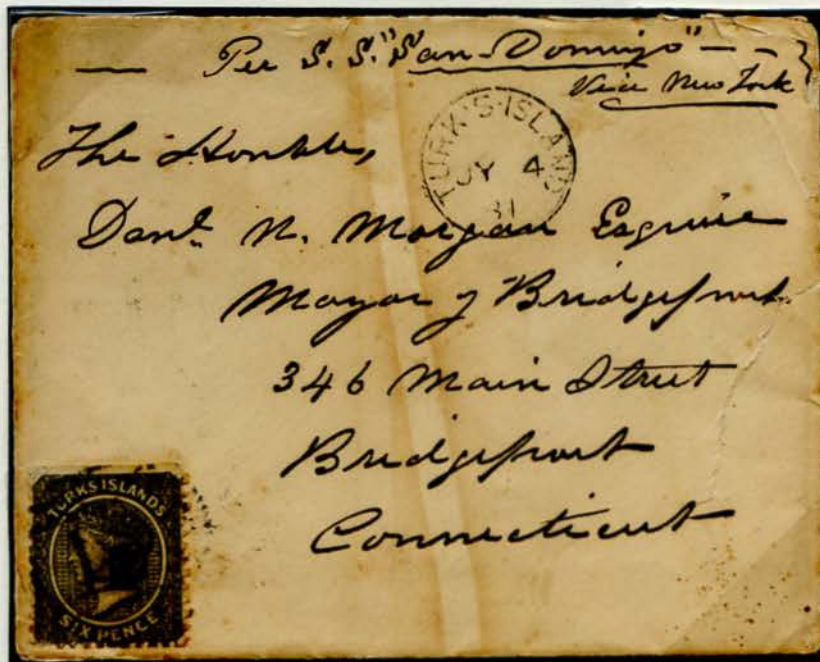 — Per S. S. "San-Domingo" — -
Via New York
TURK'S-ISLAND
JY 4
81
The Honble,
Danl. N. Morgan Esquire
Mayor of Bridgeport.
346 Main Street
Bridgeport
Connecticut
TURKS ISLANDS
SIX PENCE